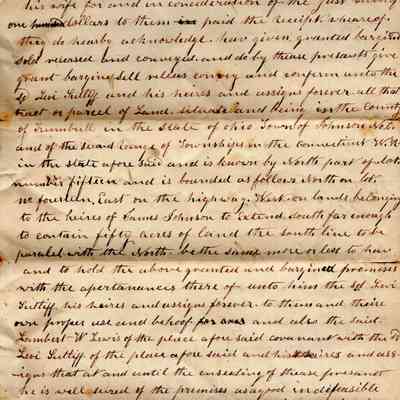 his wife for and in consideration of the Just
one dollars to them paid the receipt whereof
they do hearby acknowledge. have given granted
sold released and conveyed. and do by these presants give
grant bargins Sell release convey and confirm unto the
Sd Levi Sutliff and his heires and assigns forever all that
tract or parcel of Land, situate and being in the county
of Trumbull in the State of ohio Town of Johnson No.
and of the second range of Townships in the connecticut W. R
in the state afore said and is known by North part of lot
number fifteen and is bounded as follows North on lot
no fourteen, East on the highway. West on lands belonging
to the heires of James Johnson to extend south far enough
to contain fifty acres of land the south line to be
paralel with the North. be the same more or less to hav
and to hold the above granted and bargined promises
with the apertanances there of. unto him the sd Levi
Sutliff his heires and assigns forever. to them and theire
own proper use and behoof and also the said.
Lambert W Lewis of the place afore said covanant with the Sd
Levi Sutliff of the place afore said and his heires and ass-
igns that at and until the ensealing of these presant
he is well seized of the premises as a good indefeasible